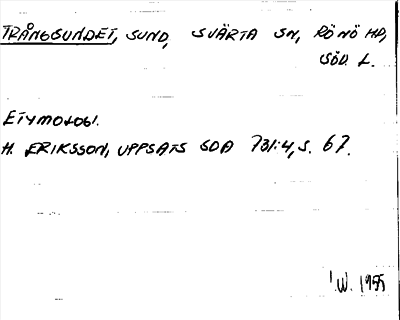 TRÅNGSUNDET, SUND, SVÄRTA SN, RÖNÖ HD,
SÖD. L.
ETYMOLOGI.
H. ERIKSSON, UPPSATS SOA 731:4, S. 67.
I.W. 1955